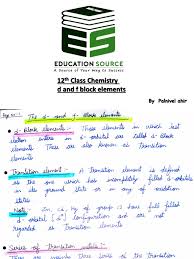 ES
EDUCATION SOURCE
A Source of Your Way to Success
12th Class Chemistry
d and f block elements
By Palnivel ahir
The d- and f- Block elements
d-Block elements :- These elements in which last
electron enters in d-orbital are called d-block
elements. These are also known as transition
elements.
Transition element :- A transition element is defined
as the one which has incompletely filled d-orbitals
in its ground state or any of oxidation state.
Note :-
orbital (d10) configuration and are not
regarded as transition elements
Series of Transition metals :-